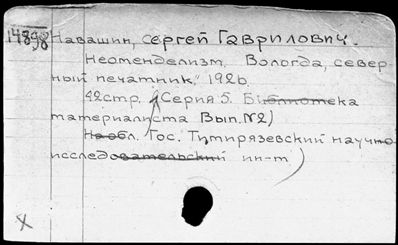 14898 Навашин, Сергей Гаврилович.
Неоменделизм. Вологда, север-
ный печатник, 1926.
42стр. (Серия 5. Библиотека
материалиста Вып. №2)
На обл. Гос. Тимирязевский научно
исследовательский ин-т)
X